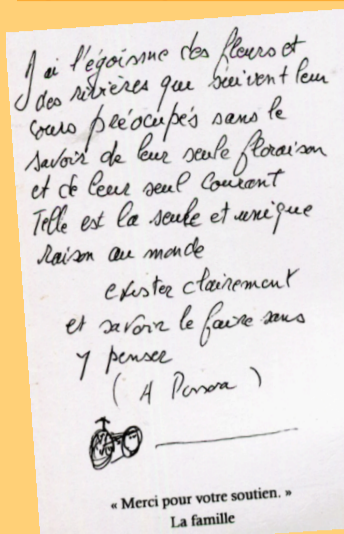 J'ai l'égoïsme des fleurs et
des rivières qui suivent leur
cours préocupés sans le
savoir de leur seule floraison
et de leur seul courant
Telle est la seule et unique
raison au monde
exister clairement
et savoir le faire sans
y penser
( A Pessoa )
« Merci pour votre soutien. »
La famille